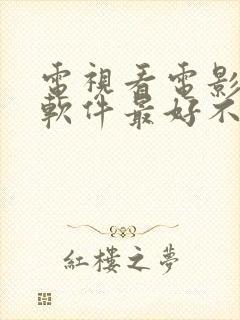 電視看電影
軟件最好不
紅樓之夢